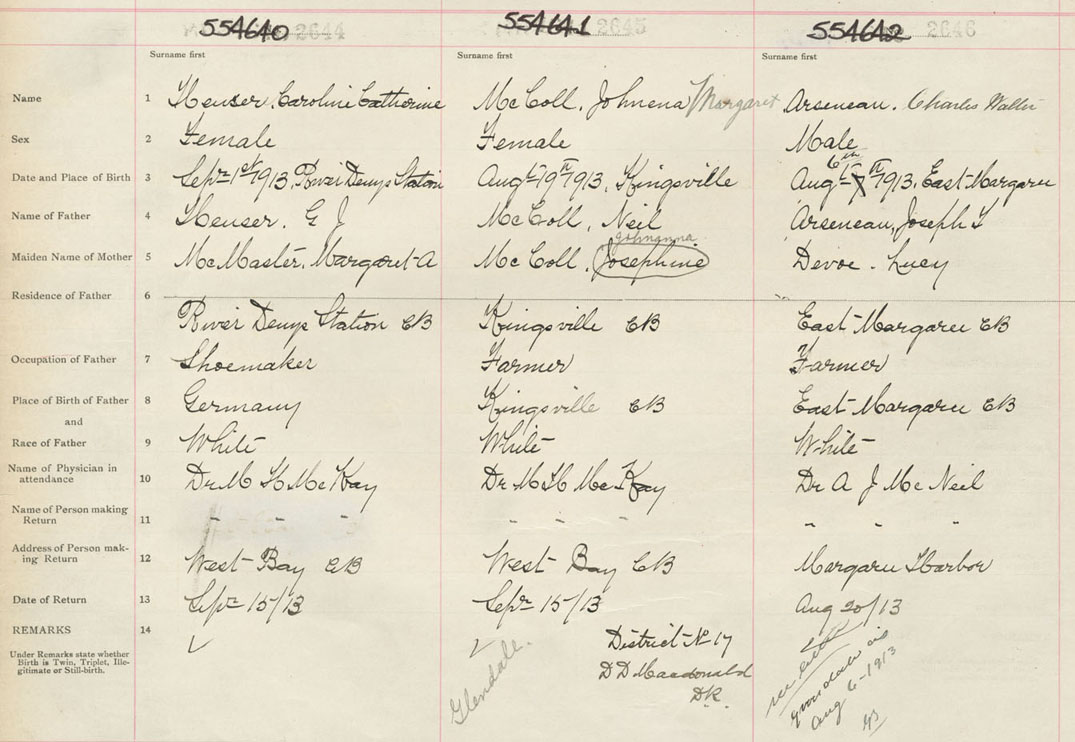 554640 2644 554641 2645 554642 2646
Surname first Surname first Surname first
Name 1 Heuser. Caroline Catherine McColl. Johnena Margaret Arseneau. Charles Walter
Sex 2 Female Female Male
6th
Date and Place of Birth 3 Sept 1st 1913. River Denys Station Augt 19th 1913, Kingsville Aug 7th 1913. East Margaree
Name of Father 4 Heuser. G J McColl, Neil Arseneau, Joseph
Johnanna
Maiden Name of Mother 5 McMaster, Margaret A McColl, Josephine Devoe. Lucy
Residence of Father 6
River Denys Station CB Kingsville CB East Margaree CB
Occupation of Father 7 Shoemaker Farmer Farmer
Place of Birth of Father 8 Germany Kingsville CB East Margaree CB
and
Race of Father 9 White White White
Name of Physician in attendance 10 Dr M H McKay Dr M H McKay Dr A J McNeil
Name of Person making Return 11 " " " " " " " " "
Address of Person mak-
ing Return 12 West Bay CB West Bay CB Margaree Harbor
Date of Return 13 Sept 15/13 Sept 15/13 Aug 20/13
REMARKS 14
Under Remarks state whether
Birth is Twin, Triplet, Ille-
gitimate or Still-birth.
Glendale.
District No 17
D D Macdonald
D.R.
see letter
date is
Aug 6-1913